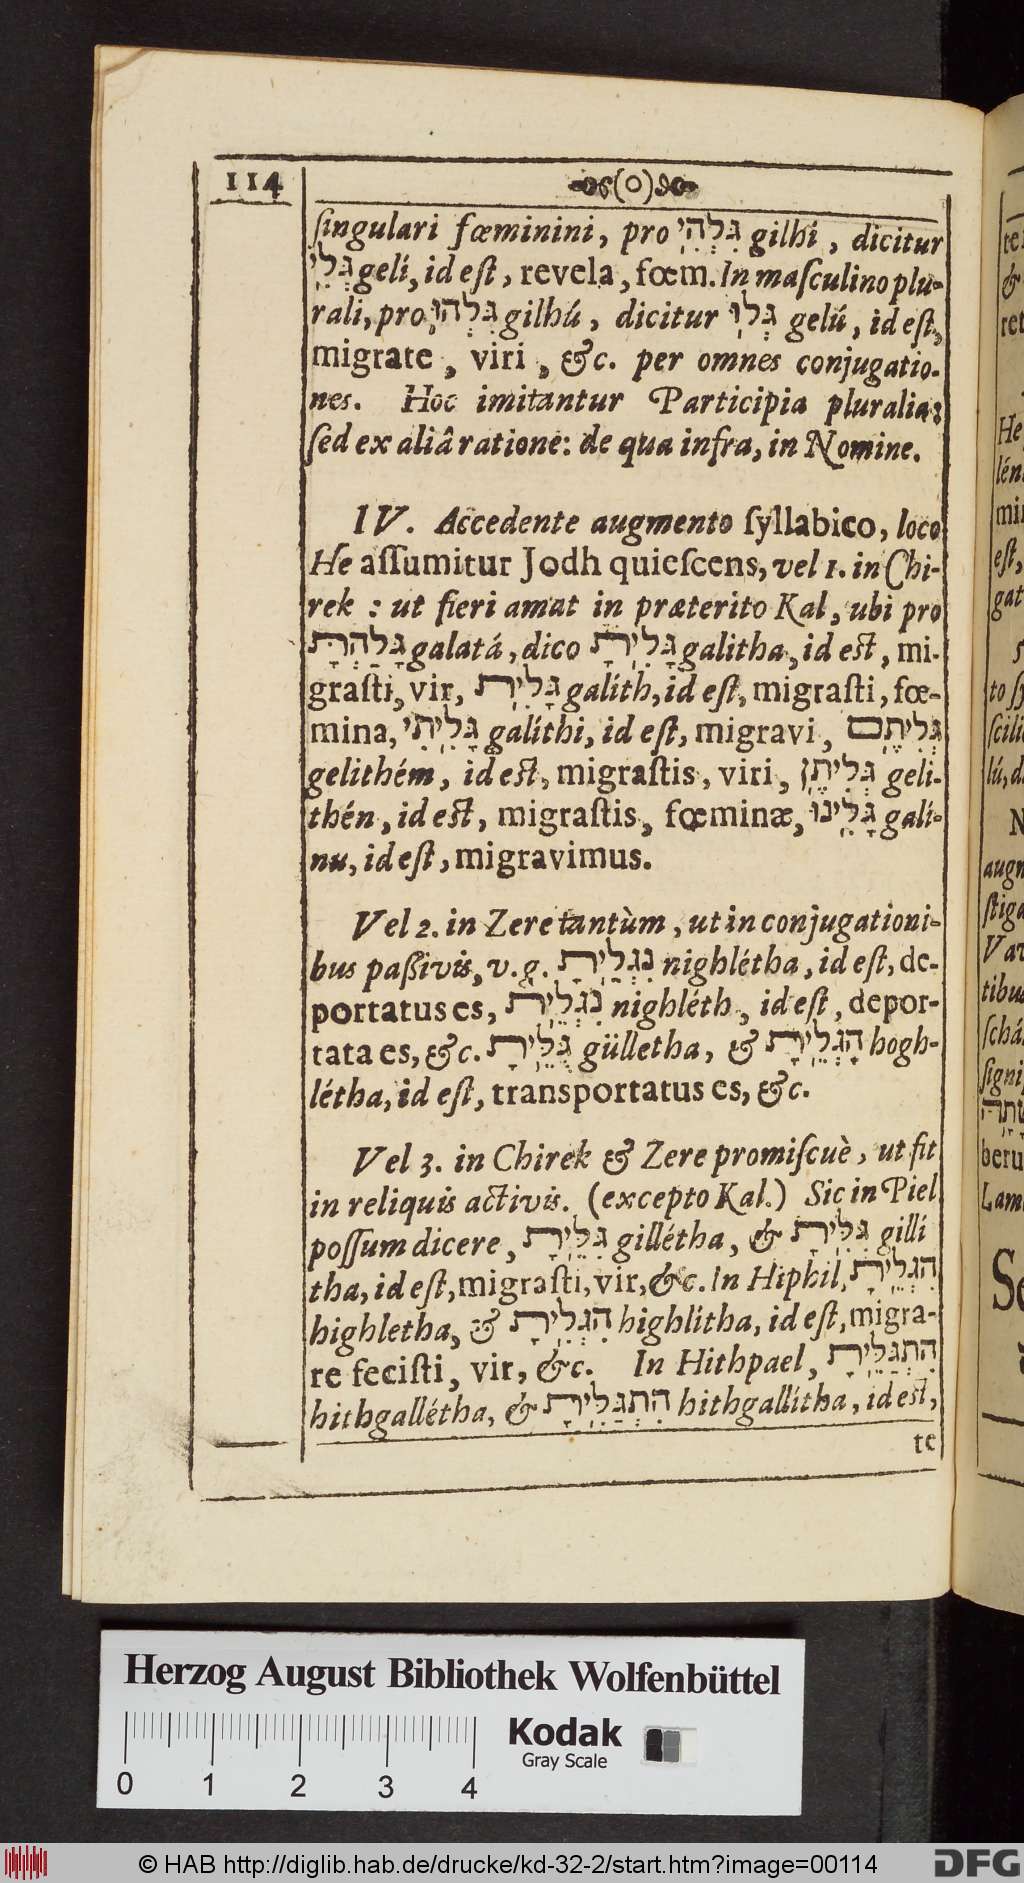 114
ſingulari fœminini, pro גִּלְהִי gilhí, dicitur
גְּלִי gelí, id eſt, revela, fœm. In maſculino plu-
rali, pro גִּלְהוּ gilhú, dicitur גְּלוּ gelú, id eſt,
migrate, viri, &c. per omnes conjugatio-
nes. Hoc imitantur Participia pluralia:
ſed ex aliâ ratione: de qua infra, in Nomine.
IV. Accedente augmento ſyllabico, loco
He aſſumitur Jodh quieſcens, vel 1. in Chi-
rek : ut fieri amat in præterito Kal, ubi pro
גָּלַהְתָּ galatá, dico גָּלִיתָ galitha, id est, mi-
graſti, vir, גָּלִית galíth, id eſt, migraſti, fœ-
mina, גָּלִיתִי galíthi, id eſt, migravi, גְּלִיתֶם
gelithém, id est, migraſtis, viri, גְּלִיתֶן geli-
thén, id est, migraſtis, fœminæ, גָּלִינוּ galí-
nu, id eſt, migravimus.
Vel 2. in Zere tantùm, ut in conjugationi-
bus paſſivis, v.g. נִגְלֵיתָ nighlétha, id eſt, de-
portatus es, נִגְלֵית nighléth, id eſt, depor-
tata es, &c. גֻּלֵּיתָ gülletha, & הָגְלֵיתָ hogh-
létha, id eſt, transportatus es, &c.
Vel 3. in Chirek & Zere promiſcuè, ut fit
in reliquis activis. (excepto Kal.) Sic in Piel
poſſum dicere, גִּלֵּיתָ gillétha, & גִּלִּיתָ gillí
tha, id eſt, migraſti, vir, &c. In Hiphil, הִגְלֵיתָ
highletha, & הִגְלִיתָ highlítha, id eſt, migra-
re feciſti, vir, &c. In Hithpael, הִתְגַּלֵּיתָ
hithgallétha, & הִתְגַּלִּיתָ hithgallítha, id est,
te
Herzog August Bibliothek Wolfenbüttel
Kodak
Gray Scale
0 1 2 3 4
© HAB http://diglib.hab.de/drucke/kd-32-2/start.htm?image=00114
DFG